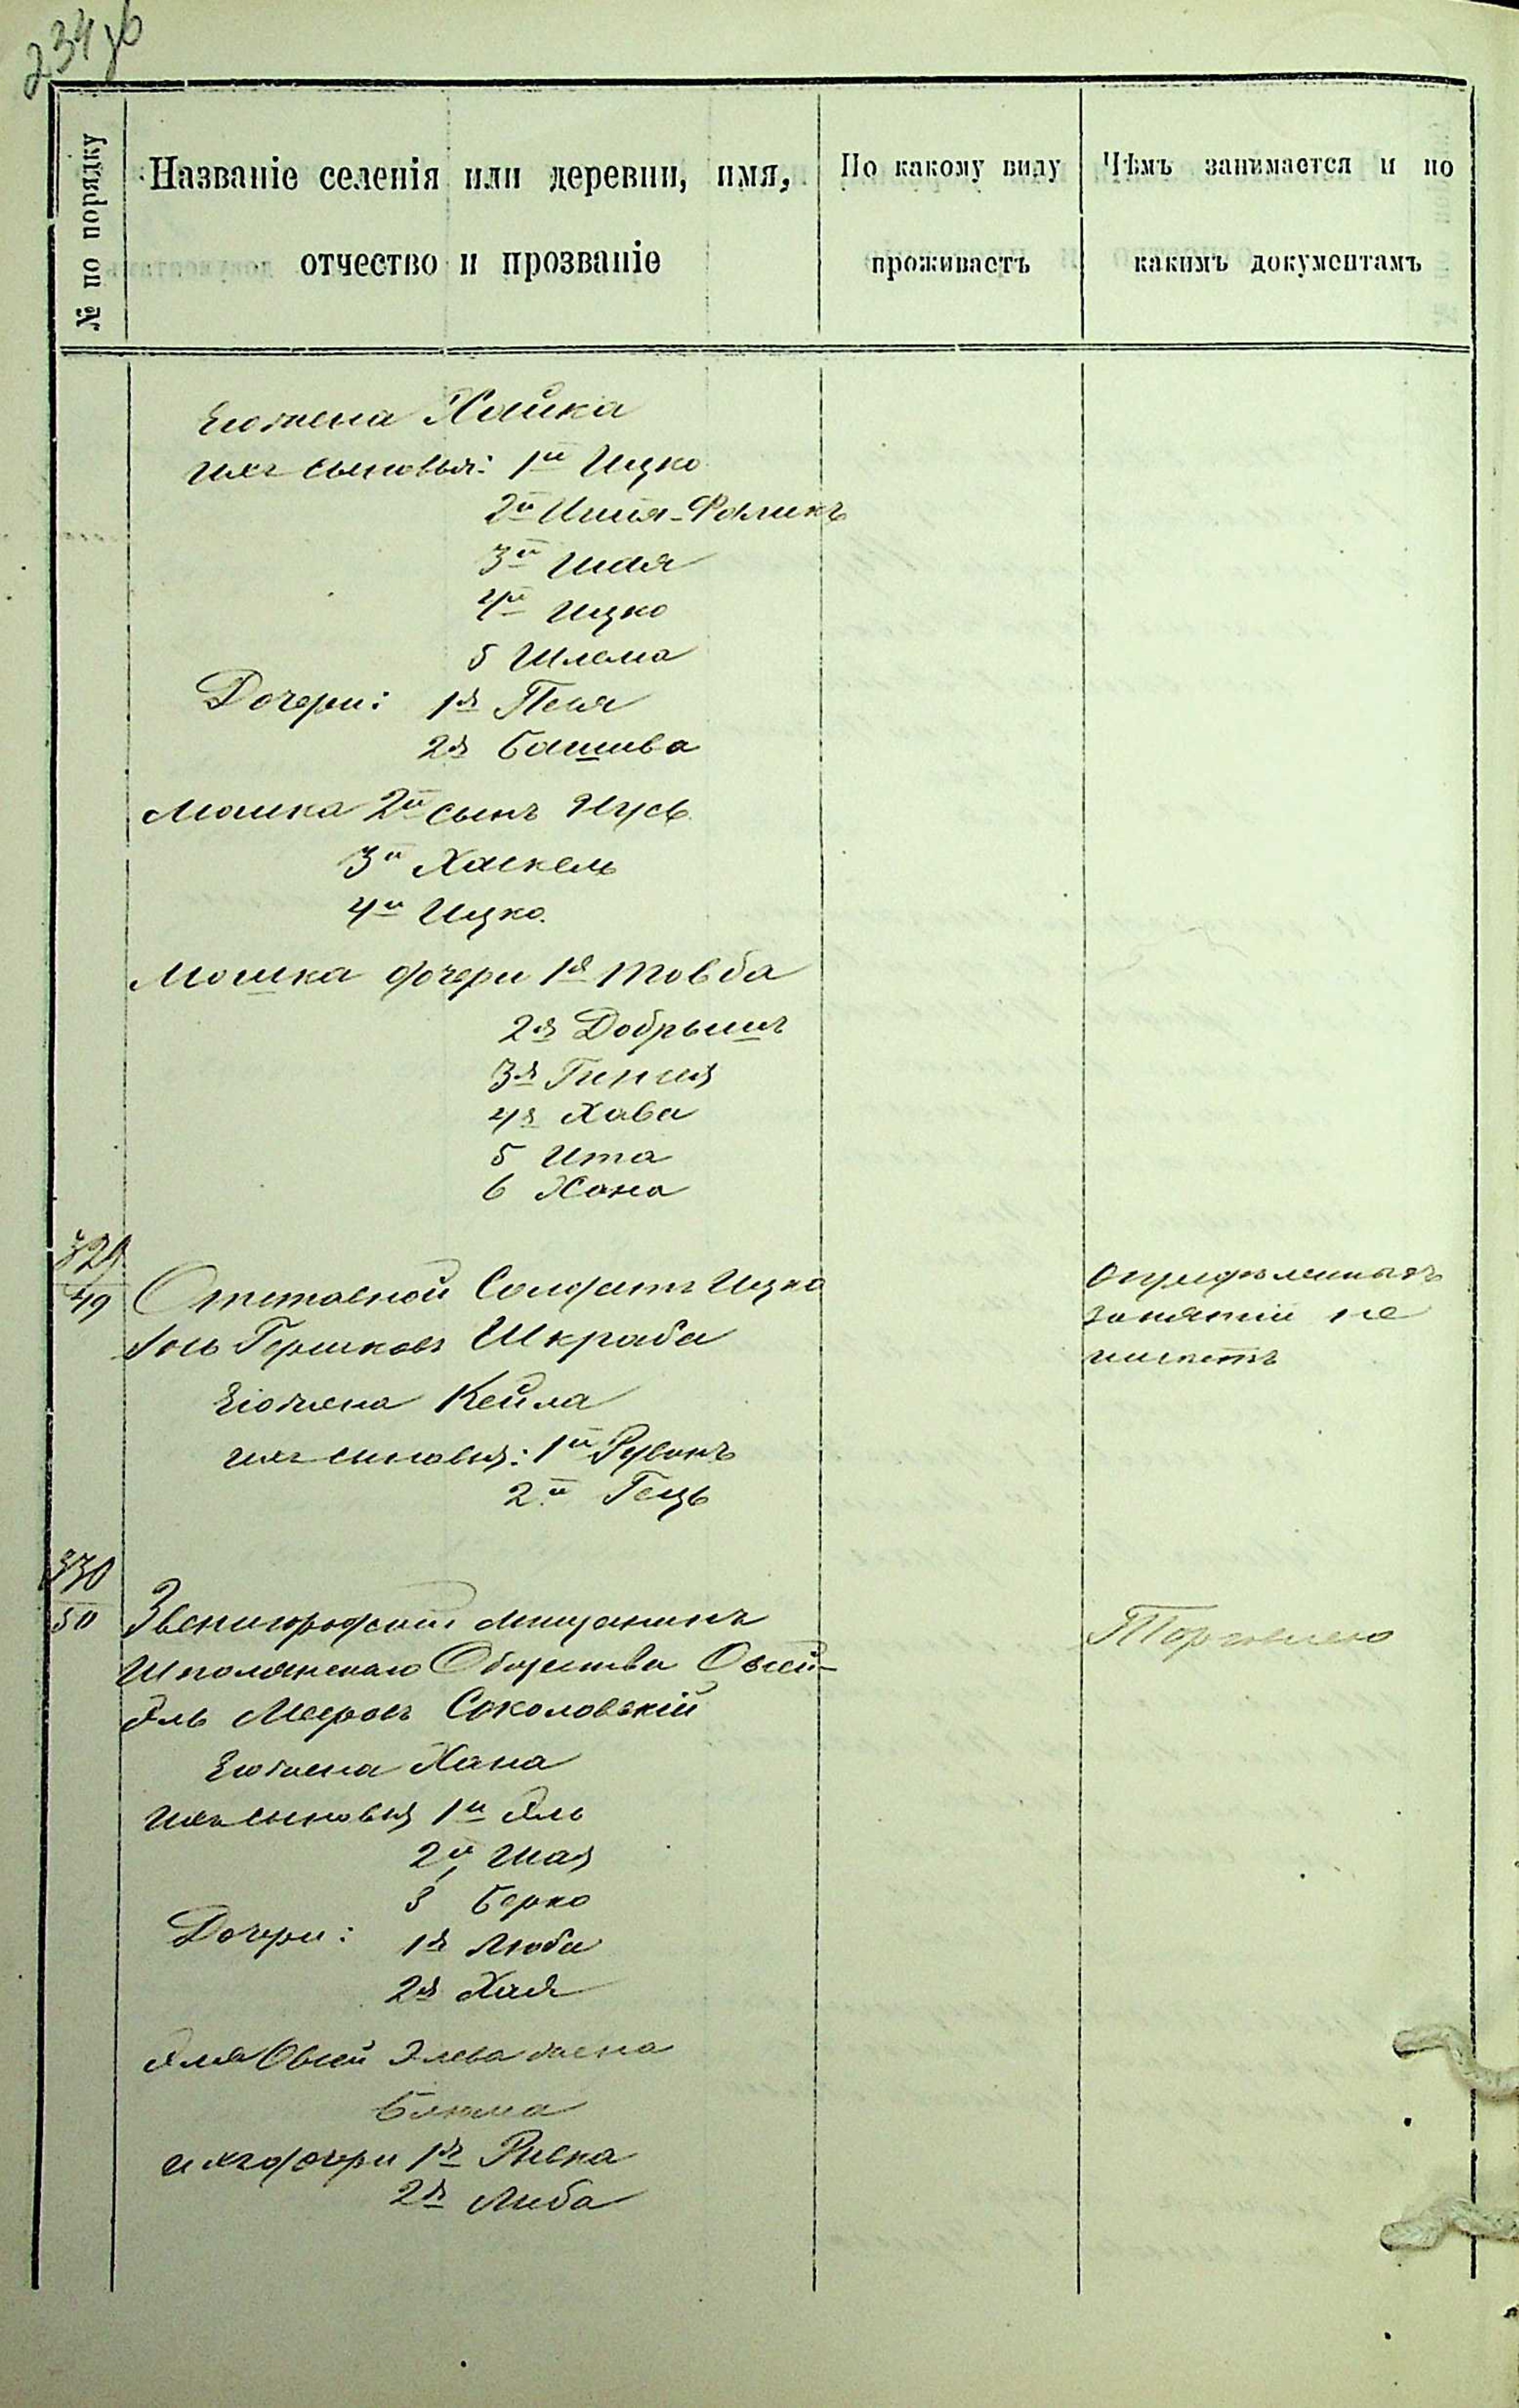 234 об
№ по порядку
Названіе селенія или деревни, имя,
отчество и прозваніе
По какому виду
проживаетъ
Чѣмъ занимается и по
какимъ документамъ
Его жена Хайка
ихъ сыновья: 1й Ицко
2й Фоликъ
3й Шая
4й Ицко
5 Шлема
Дочери: 1я Песя
2я Башива
Мошка 2й сынъ Нусь
3й Хаскель
4й Ицко.
Мошка дочери 1я Товба
2я Добрышъ
3я
4я Хава
5 Ита
6 Хана
329
49
Отставной Солдатъ Ицко
Гершковъ Шкраба
Его жена Кейла
ихъ сыновья: 1й Рувинъ
2й Гецъ
Опредѣленныхъ
занятій не
имѣетъ
330
50
Звенигородскій мѣщанинъ
Шполянскаго Общества Овсей-
Эль Мееровъ Соколовскій
Его жена Хана
ихъ сыновья 1й Эль
2й Шая
3 Берко
Дочери: 1я Люба
2я Хая
Эля Овсей Элева жена
Блюма
ихъ дочери 1я Ривка
2я Либа
Торговлею